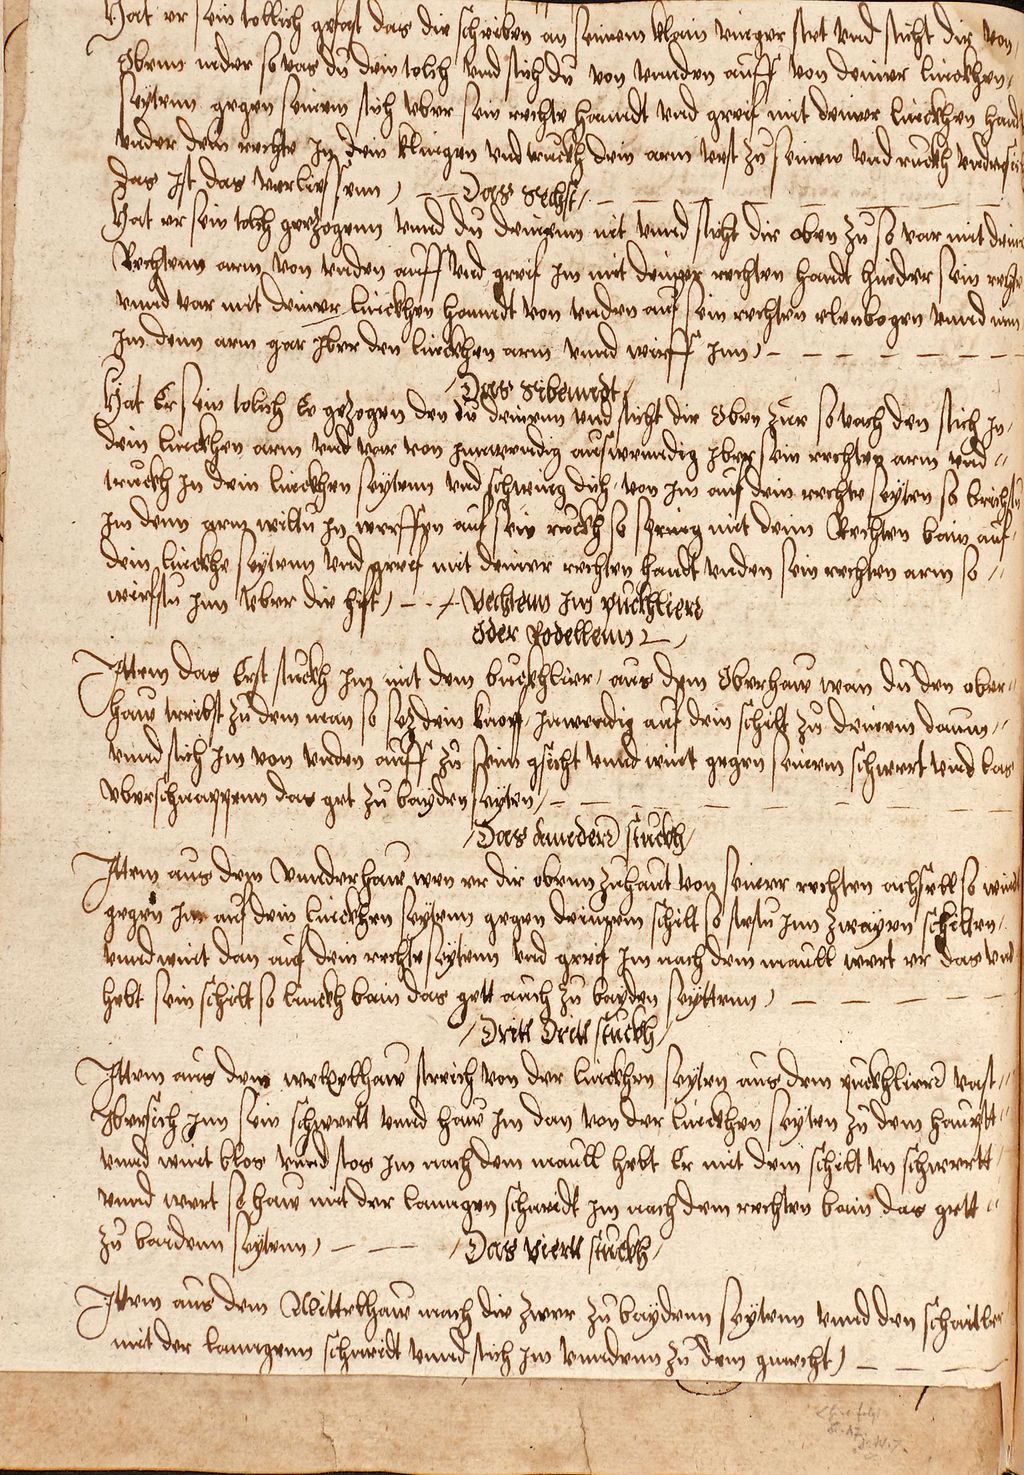 Hat er sein tollich gefast das die schreiben an seinem klain vinger stet vnd sticht dir von
Obenn nider so vas du dein tolch vnd stich du von vnnden auff von deiner linckhen
seytenn gegen seinem stich vber sein rechte hanndt vnd greif mit deiner linckhen handt
vnder dein rechte In dein klingen vnd truckh dein arm vest zu seinem vnd ruckh vndersich
das ist das verliessenn / Das sechst /
Hat er sein tolch gezogenn vnnd du deinenn nit vnnd sticht dir oben zu so var mit deim
Rechtenn arm von vnden auff vnd greif im mit deiner rechten handt hinder sein rechte
vnnd var mit deiner linckhen hanndt von vnden auf sein rechten elenbogen vnnd nim
Im denn arm gar Iber den linckhen arm vnnd wirff Inn /
/ Das sibenndt /
Hat Er sein tolich Ee gezogen den du deinenn vnd sticht dir Oben zue so vach den stich In
dein linckhen arm vnd var von Innwendig auswenndig Iber sein rechten arm vnd
truckh In dein linckhen seytenn vnd schwing dich von Im auf dein rechte seyten so brichstu
Im denn arm wiltu In werffen auf sein ruckh so spring mit deim Rechten bain auf
dein linckhe seytenn vnd greif mit deiner rechten handt vnden sein rechten arm so
wirfstu Inn vber die hift / Vechtenn Im puckhlier
Oder Rodellenn
Ittem das Erst stuckh Im mit dem buckhlier / aus dem Oberhaw wan du den ober
haw treibst zu dem man so sez dein knopf Inwendig auf dein schilt zu deinem daum
vnnd stich Im von vnden auff zu seim gsicht vnnd wint gegen seinem schwert vnd las
vberschnappenn das get zu bayden seyten /
/ Das annderr stuckh /
Ittem aus dem Vnnderhaw wen er dir obenn zuhaut von seiner rechten achsell so wint
gegen Im auf dein linckhen seytenn gegen deinem schilt so stestu Inn zwayen schilten
vnnd wint dan auf dein rechte seytenn vnd greif Im nach dem maull wert er das vnd
hebt sein schilt so linckh bain das gett auch zu bayden seyttenn /
/ Dritt Dritt stuckh /
Ittem aus dem wexelhaw streich von der linckhen seyten aus dem puckhlierr vast
Ibersich Inn sein schwertt vnnd haw Im dan von der linckhen seyten zu dem hauptt
vnnd wint blos vnnd stos Im nach dem maull hebt Er mit dem schilt vn schwertt
vnnd wert so haw mit der lanngen schneidt Im nach dem rechten bain das gett
zu baidenn seytenn / / Das viertt stuckh /
Ittem aus dem Mittelhaw mach die zwer zu baydenn seytenn vnnd den schaitler
mit der lanngenn schneidt vnnd stich Im vnndenn zu dem gmecht /